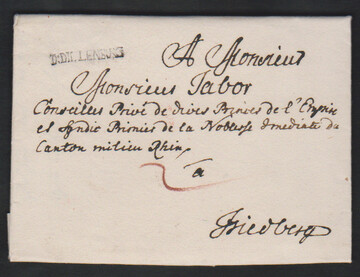 D:DILLENBURG
A Monsieur
Monsieur Tabor
Conseiller Privé de divers Princes de l'Empire
et Syndic Premier de la Noblesse Immediate du
Canton milieu Rhin
a
Friedberg